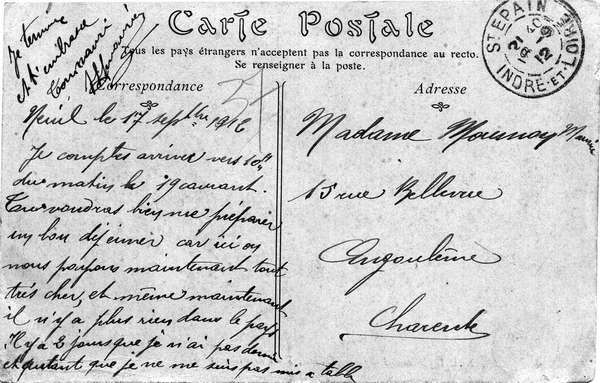 Je termine
et t'embrasse
Ton mari
Carte Postale
Tous les pays étrangers n'acceptent pas la correspondance au recto.
Se renseigner à la poste.
Correspondance
Adresse
ST EPAIN
INDRE-ET-LOIRE
Neuil le 17 septbre 1912
Je comptes arriver vers 10h
du matin le 19 courant.
Tu voudras bien me préparer
un bon déjeuner car ici on
nous payons maintenant tout
très cher, et même maintenant
il n'y a plus rien dans le pays
Il y a 3 jours que je n'ai pas
et autant que je ne me suis pas mis a table
Madame
15 rue Bellevue
Angoulême
Charente